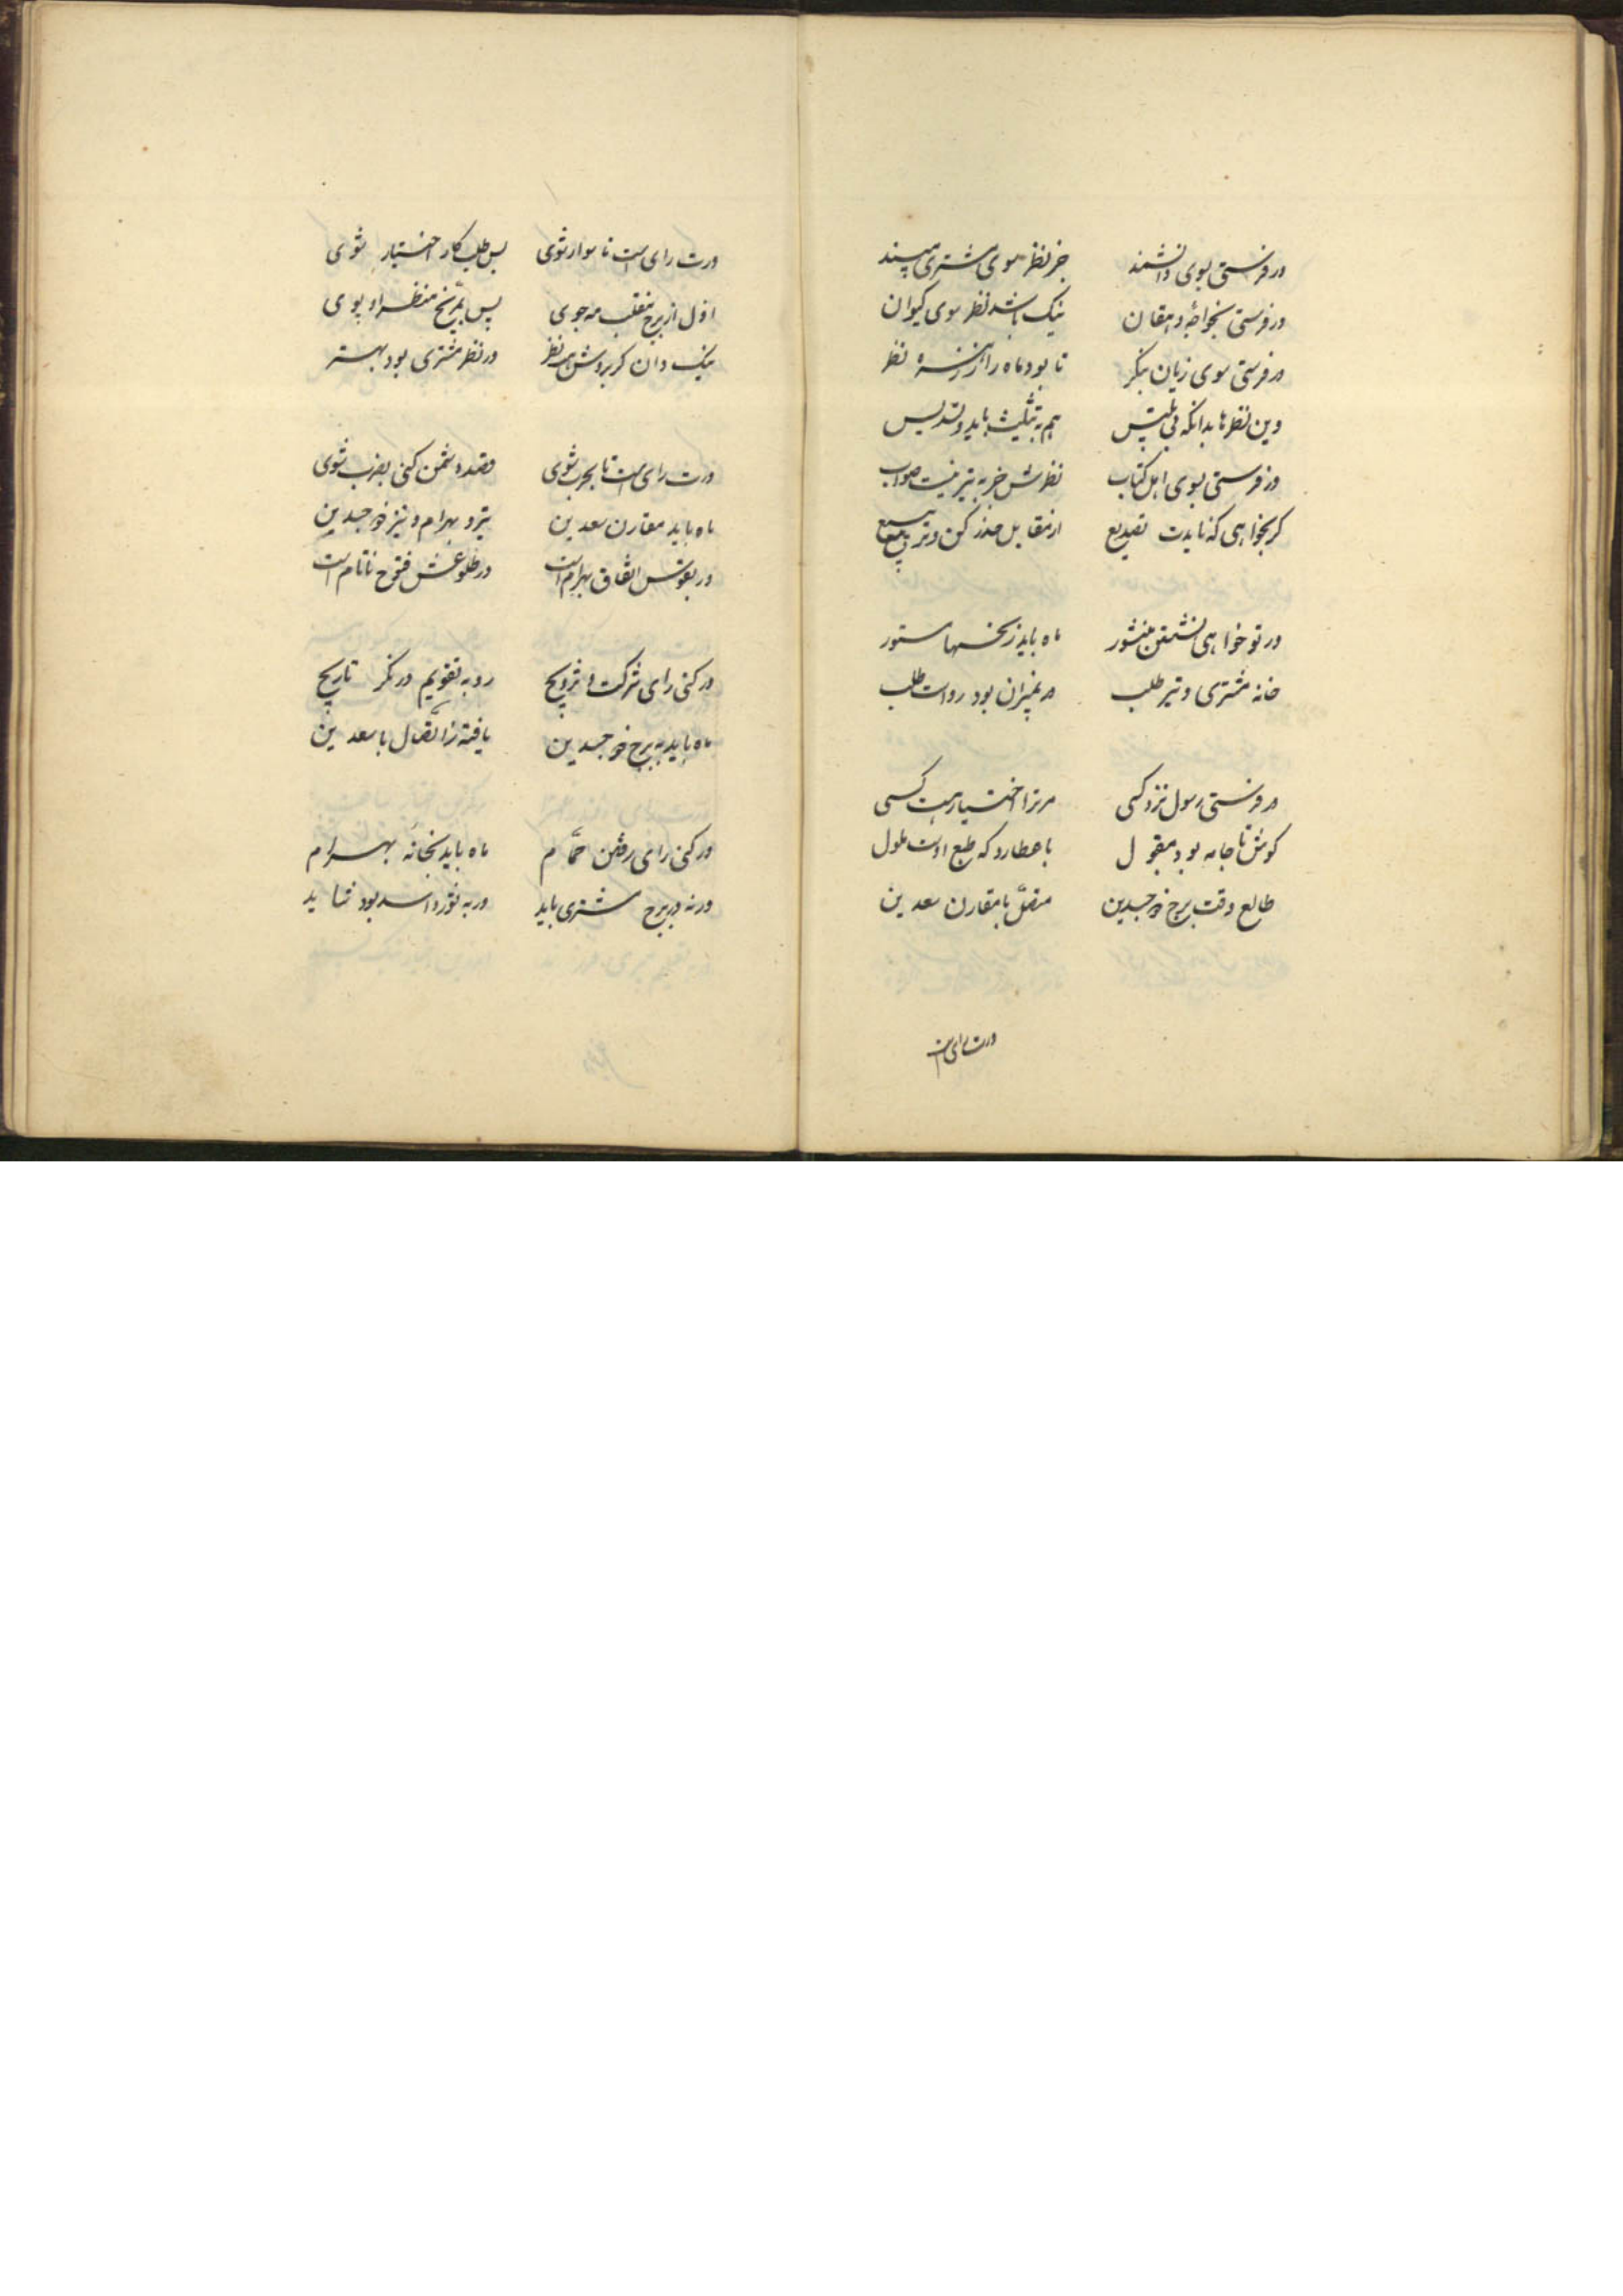 در فرستی بسوی دانشمند جز نظر سوی مشتری مپسند
در فرستی بخواجه و دهقان نیک باشد نظر سوی کیوان
در فرستی سوی زنان بنگر تا بود ماه را ز زهره نظر
وین نظرها بدانکه بی تلبیس هم به تثلیث باید و تسدیس
ور فرستی بسوی اهل کتاب نظرش جز به تیر نیست صواب
گر بخواهی که نایدت تصدیع از مقابل حذر کن و تربیع
ور تو خواهی نشستن منشور ماه باید ز نحسها مستور
خانه مشتری و تیر طلب ور بمیزان بود رواست طلب
ور فرستی رسول نزد کسی مر ترا اختیار هست بسی
کوش تا جامه بود مقبول با عطارد که طبع اوست ملول
طالع وقت برج ذو جسدین متصل یا مقارن سعدین
ورت رای است
ورت رای است تا سوار شوی پس طلب کار اختیار شوی
اول از برج منقلب مه جوی پس بمریخ منظر او پوی
نیک دان گر بدوش هست نظر ور نظر مشتری بود بهتر
ورت رای است تا بحرب شوی قصد دشمن کنی بضرب شوی
ماه باید مقارن سعدین تیر و بهرام و نیز ذو جسدین
ور بقوتش اتفاق بهرام است در طلوعش فتوح ناتمام است
ور کنی رای شرکت و تزویج رو به تقویم در نگر تاریج
ماه باید به برج ذو جسدین یافته ز اتصال با سعدین
ور کنی رای رفتن حمّام ماه باید بخانه بهرام
ورنه در برج مشتری باید ور به ثور و اسد بود شاید